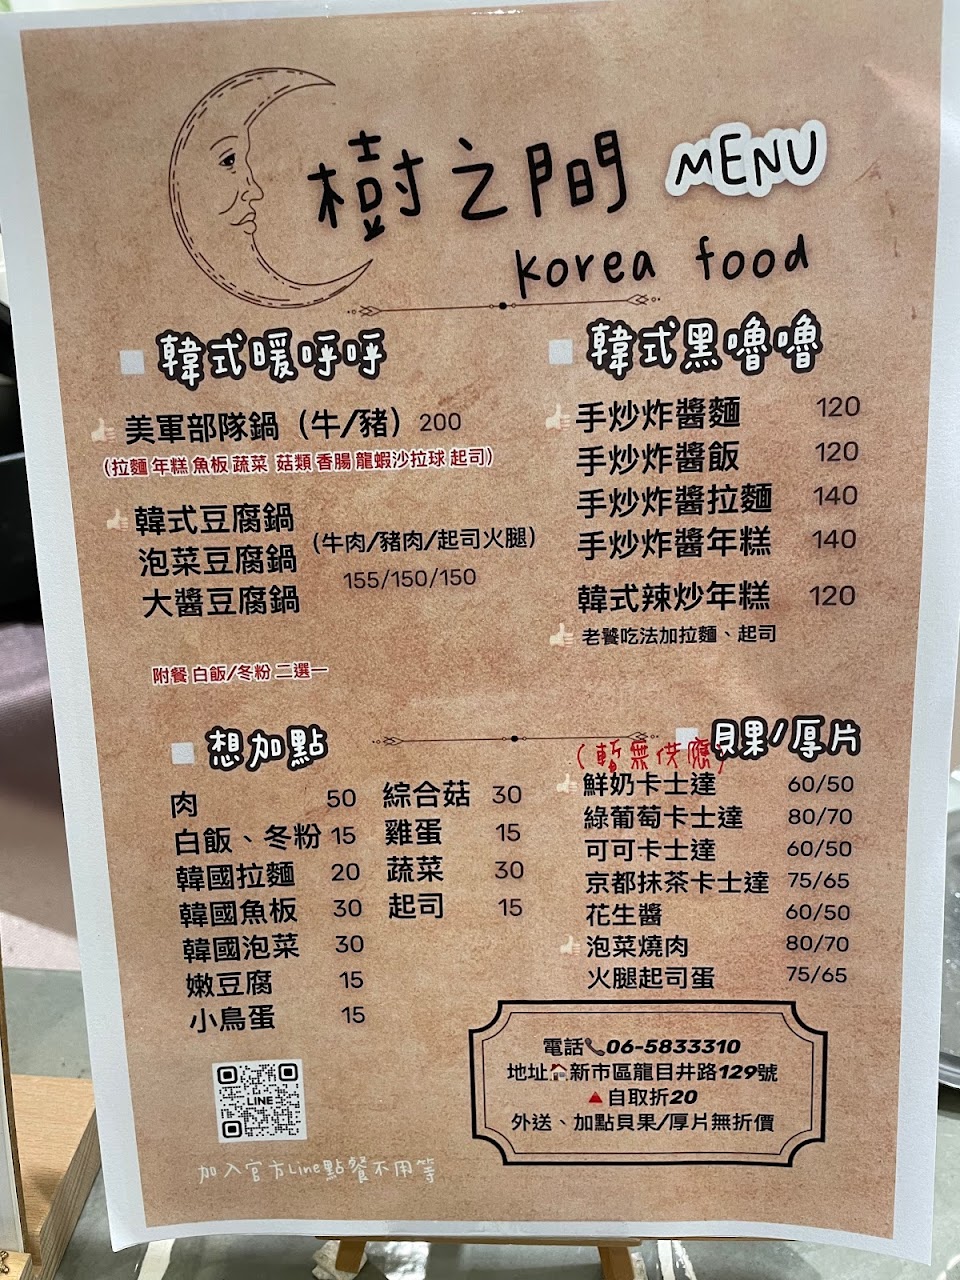 樹之間 MENU
korea food
韓式暖呼呼
美軍部隊鍋(牛/豬) 200
(拉麵 年糕 魚板 蔬菜 菇類 香腸 龍蝦沙拉球 起司)
韓式豆腐鍋
泡菜豆腐鍋
大醬豆腐鍋
(牛肉/豬肉/起司火腿)
155/150/150
附餐 白飯/冬粉 二選一
韓式黑嚕嚕
手炒炸醬麵 120
手炒炸醬飯 120
手炒炸醬拉麵 140
手炒炸醬年糕 140
韓式辣炒年糕 120
老饕吃法加拉麵、起司
想加點
肉 50
白飯、冬粉 15
韓國拉麵 20
韓國魚板 30
韓國泡菜 30
嫩豆腐 15
小鳥蛋 15
綜合菇 30
雞蛋 15
蔬菜 30
起司 15
貝果/厚片
(暫無供應)
鮮奶卡士達 60/50
綠葡萄卡士達 80/70
可可卡士達 60/50
京都抹茶卡士達 75/65
花生醬 60/50
泡菜燒肉 80/70
火腿起司蛋 75/65
電話06-5833310
地址新市區龍目井路129號
自取折20
外送、加點貝果/厚片無折價
LINE
加入官方Line點餐不用等